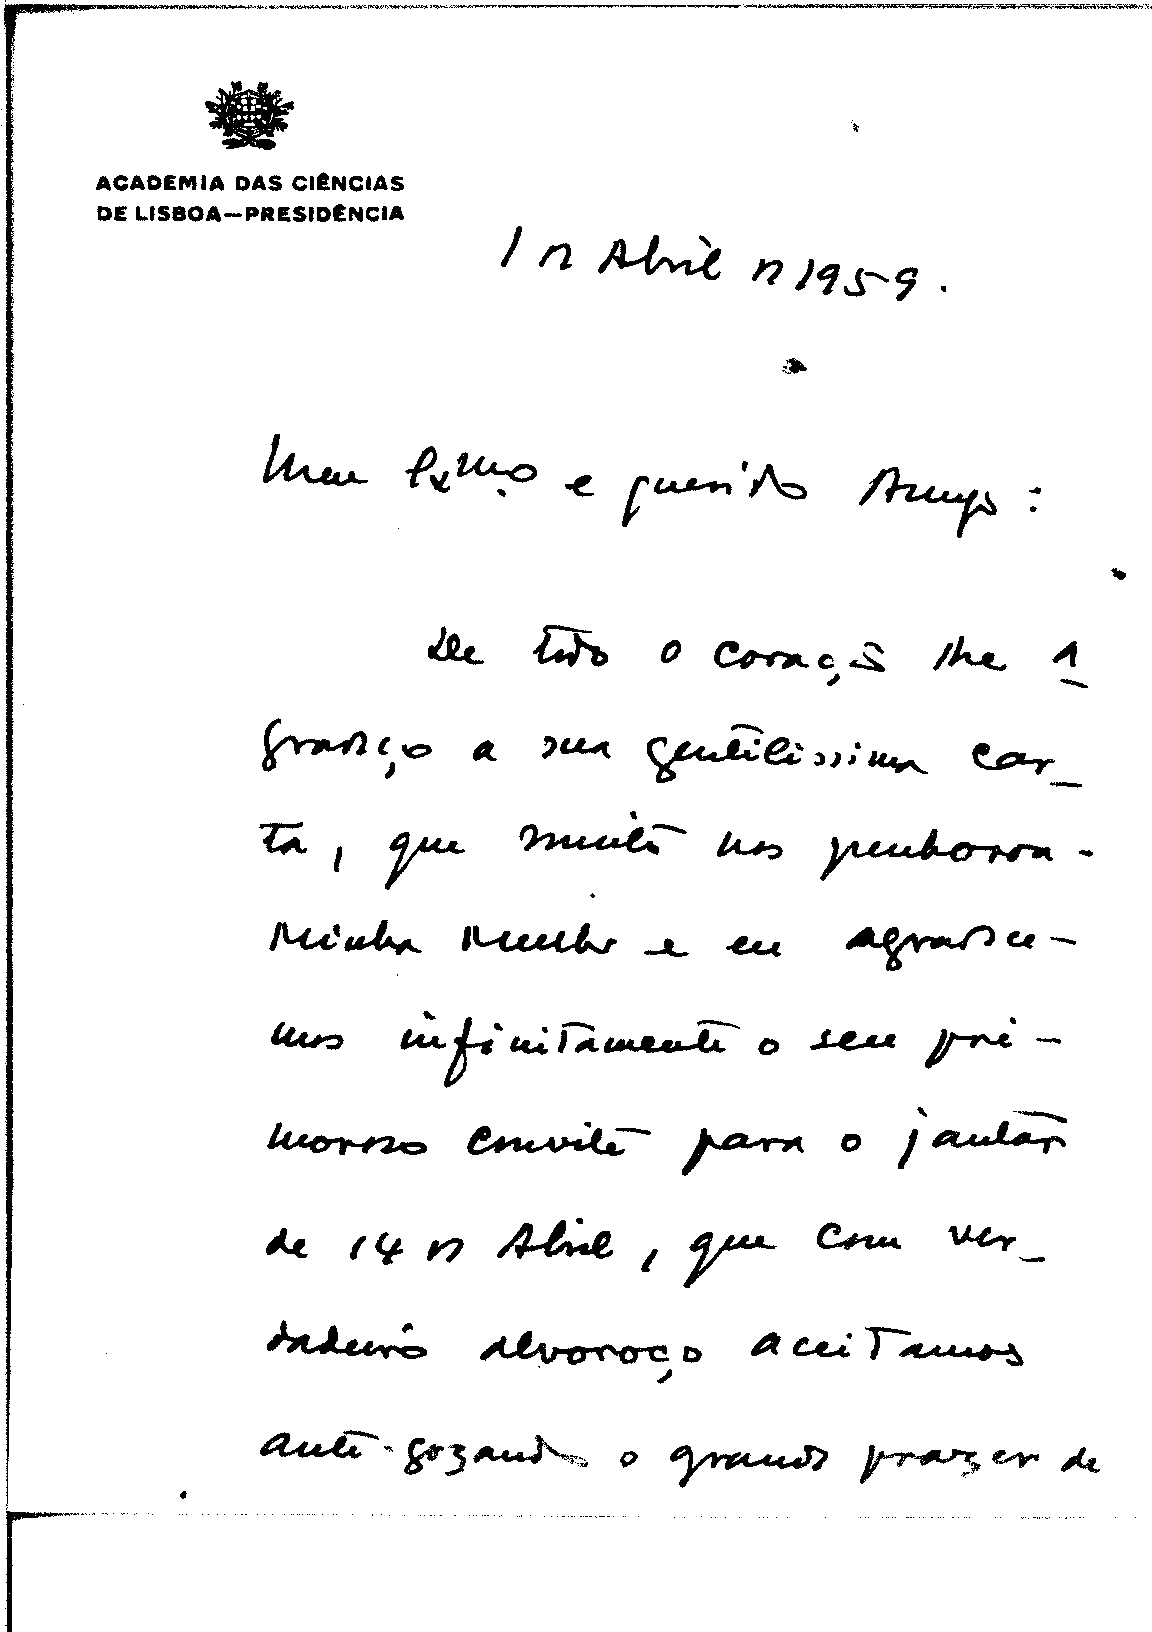 ACADEMIA DAS CIÊNCIAS
DE LISBOA—PRESIDÊNCIA
1 de Abril de 1959.
Meu Exmo e querido Amigo:
De todo o coração lhe a-
gradeço a sua gentilissima car-
ta, que muito nos penhorou.
Minha Mulher e eu agradece-
mos infinitamente o seu pri-
moroso convite para o jantar
de 14 de Abril, que com ver-
dadeiro alvoroço aceitamos
ante-gozando o grande prazer de